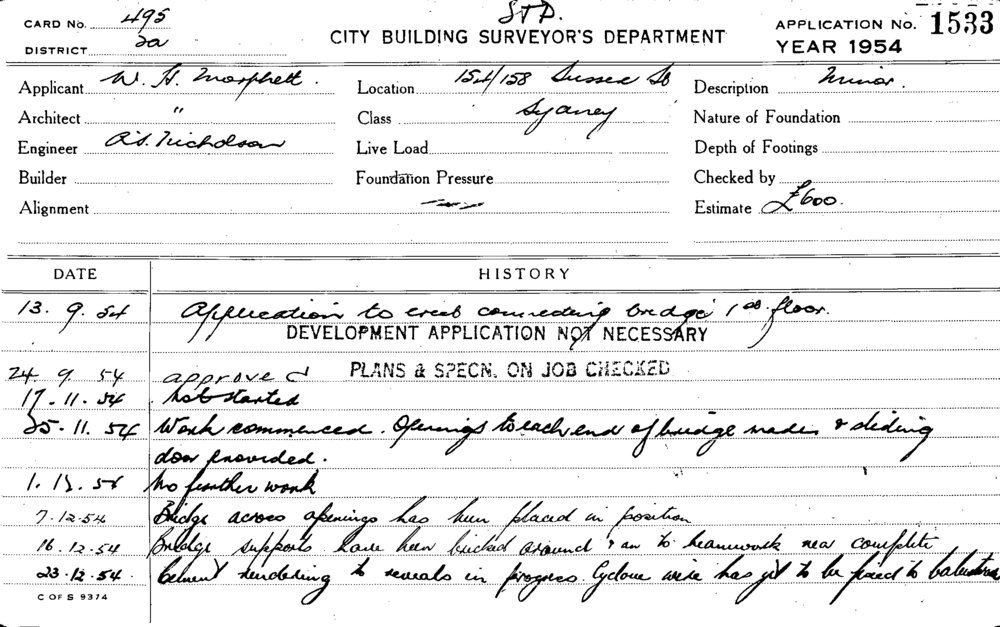 STD.
CARD No. 495
DISTRICT 2a
CITY BUILDING SURVEYOR'S DEPARTMENT
APPLICATION No. 1533
YEAR 1954
Applicant W. H. Morphett.
Location 154/158 Sussex St
Description Minor.
Architect "
Class Sydney
Nature of Foundation
Engineer R.S. Nicholson
Live Load
Depth of Footings
Builder
Foundation Pressure
Checked by
Alignment
Estimate £600.
DATE HISTORY
13. 9. 54 Application to erect connecting bridge 1st floor.
DEVELOPMENT APPLICATION NOT NECESSARY
24. 9. 54 approved PLANS & SPECN. ON JOB CHECKED
17. 11. 54 Not started
25. 11. 54 Work commenced. Openings to each end of bridge made & sliding
door provided.
1. 12. 54 No further work
7. 12. 54 Bridge across openings has been placed in position
16. 12. 54 Bridge supports have been bricked around near complete
23. 12. 54. Cement rendering to reveals in progress. Cyclone wire has yet to be fixed to
C OF S 9374